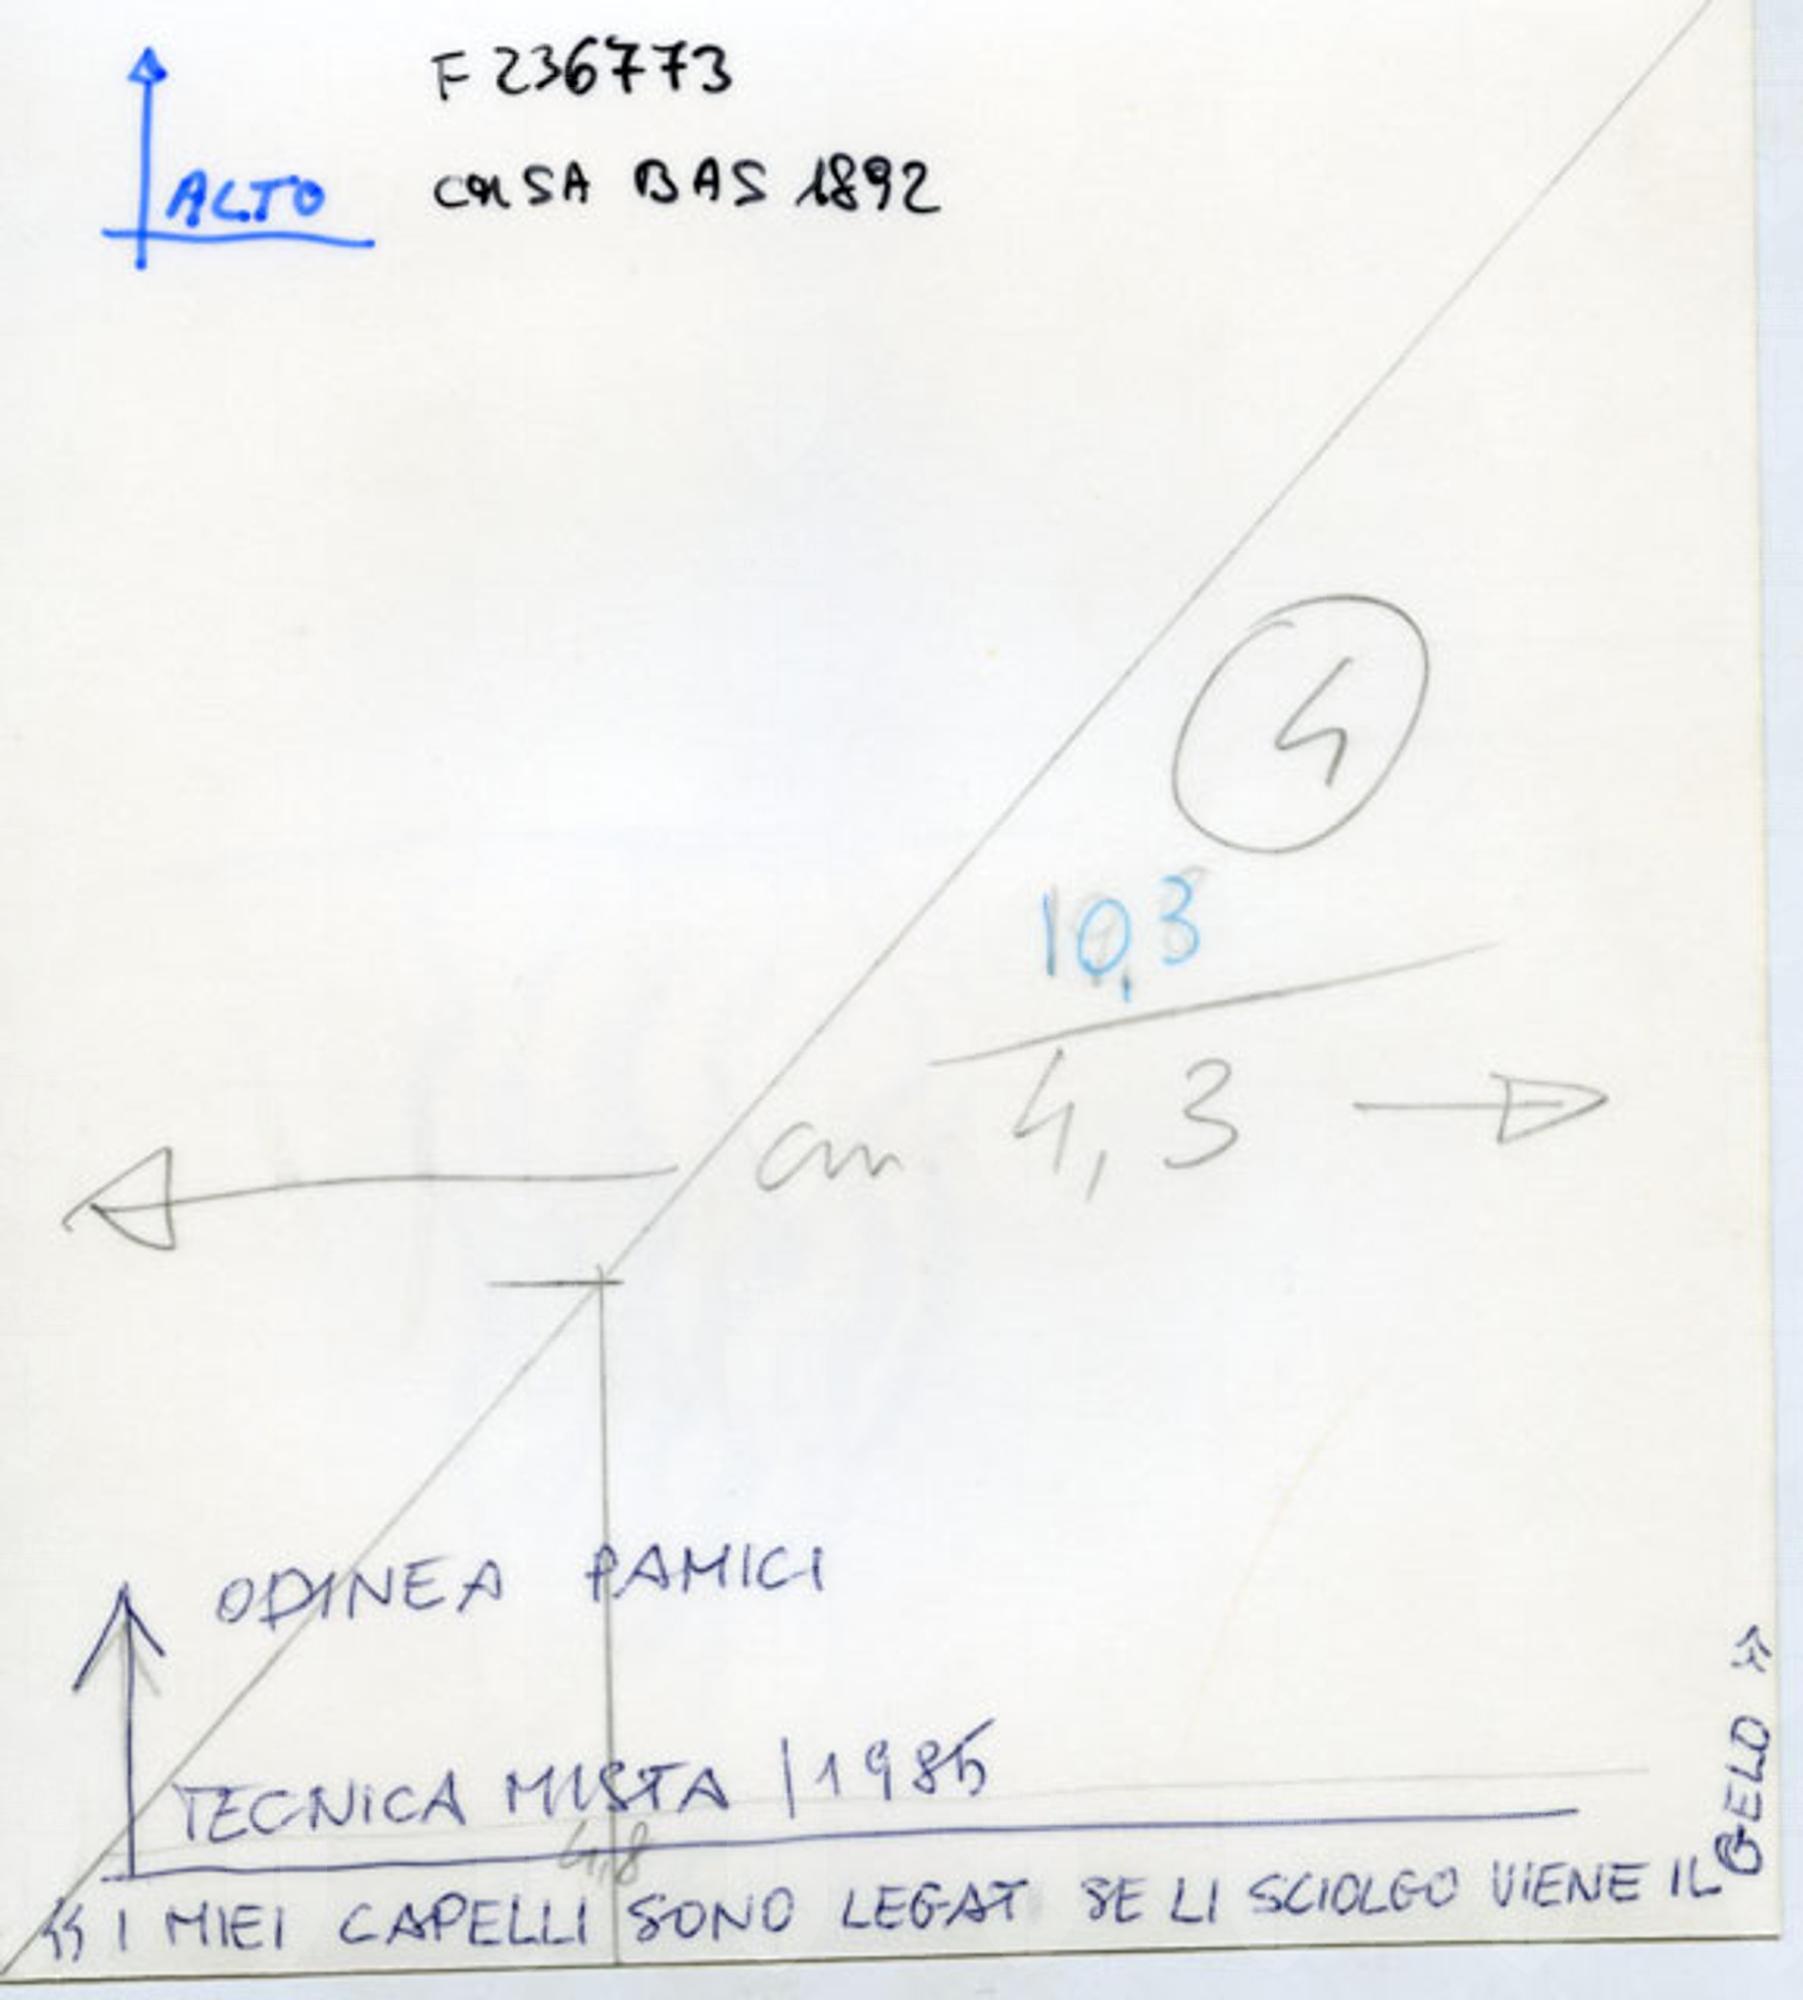 F 236773
ALTO
CORSA BAS 1892
4
10,3
cm 4,3
ODINEA PAMICI
TECNICA MISTA | 1985
4,8
« I MIEI CAPELLI SONO LEGAT SE LI SCIOLGO VIENE IL GELO »